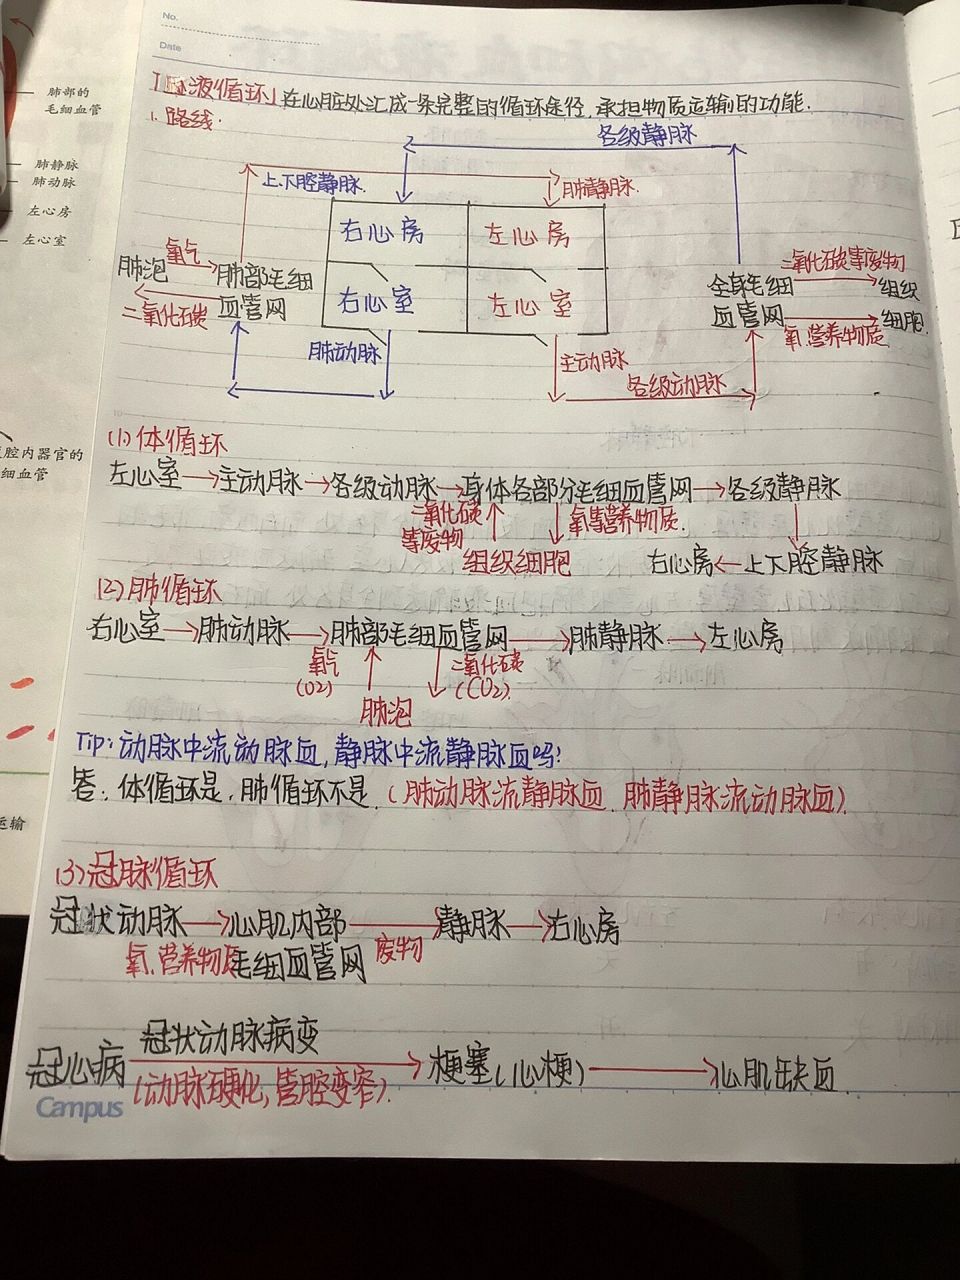 No.
Date
肺部的
毛细血管
肺静脉
肺动脉
左心房
左心室
腔内器官的
细血管
运输
「血液循环」在心脏处汇成一条完整的循环途径,承担物质运输的功能.
1. 路线.
各级静脉
上.下腔静脉.
肺静脉.
右心房
左心房
右心室
左心室
肺泡
氧气
二氧化碳
肺部毛细
血管网
肺动脉
主动脉
各级动脉
全身毛细
血管网
二氧化碳等废物
氧.营养物质
组织
细胞.
(1)体循环
左心室→主动脉→各级动脉→身体各部分毛细血管网→各级静脉
二氧化碳
等废物
氧等营养物质.
组织细胞
右心房←上下腔静脉
(2)肺循环
右心室→肺动脉→肺部毛细血管网→肺静脉→左心房
氧气
(O2)
二氧化碳
(CO2)
肺泡
Tip:动脉中流动脉血,静脉中流静脉血吗?
答:体循环是.肺循环不是.(肺动脉流静脉血.肺静脉流动脉血).
(3)冠脉循环
冠状动脉→心肌内部→静脉→右心房
氧.营养物质
毛细血管网
废物
冠状动脉病变
冠心病→梗塞(心梗)→心肌缺血
(动脉硬化,管腔变窄).
Campus